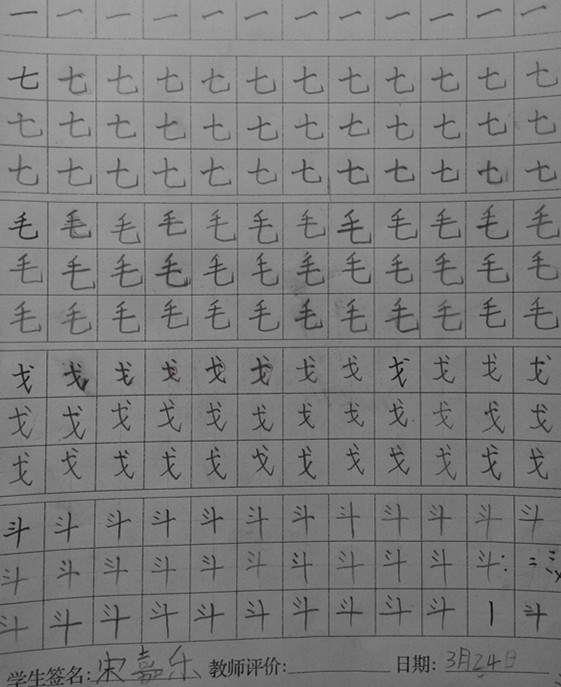 一 一 一 一 一 一 一 一 一 一 一 一
七 七 七 七 七 七 七 七 七 七 七 七
七 七 七 七 七 七 七 七 七 七 七 七
七 七 七 七 七 七 七 七 七 七 七 七
毛 毛 毛 毛 毛 毛 毛 毛 毛 毛 毛 毛
毛 毛 毛 毛 毛 毛 毛 毛 毛 毛 毛 毛
毛 毛 毛 毛 毛 毛 毛 毛 毛 毛 毛 毛
戈 戈 戈 戈 戈 戈 戈 戈 戈 戈 戈 戈
戈 戈 戈 戈 戈 戈 戈 戈 戈 戈 戈 戈
戈 戈 戈 戈 戈 戈 戈 戈 戈 戈 戈 戈
斗 斗 斗 斗 斗 斗 斗 斗 斗 斗 斗 斗
斗 斗 斗 斗 斗 斗 斗 斗 斗 斗 斗
斗 斗 斗 斗 斗 斗 斗 斗 斗 斗 斗
学生签名:宋嘉乐 教师评价: 日期:3月24日